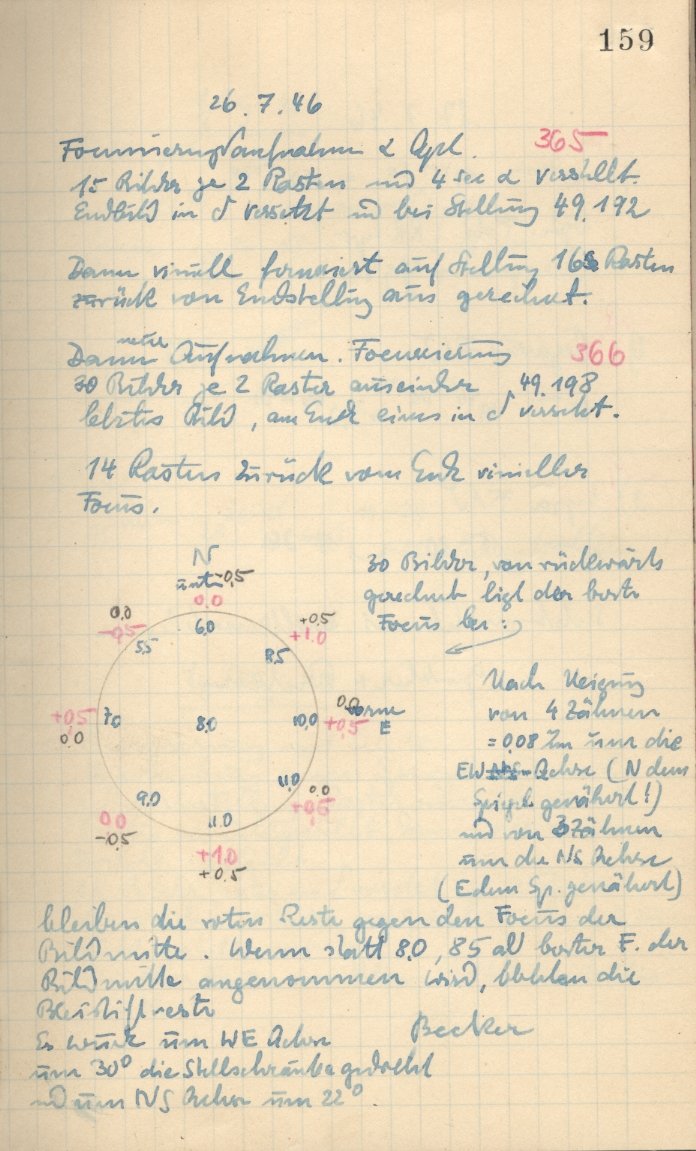 159
26.7.46
Focussierungsaufnahmen α Cyg. 365
15 Bilder je 2 Rasten und 4 sec α verstellt.
Endbild in δ versetzt und bei Stellung 49.192
Dann visuell focussiert auf Stellung 16 Rasten
zurück von Endstellung aus gerechnet.
neue
Dann Aufnahmen. Focussierung 366
30 Bilder je 2 Rasten auseinander 49.198
letztes Bild, am Ende eines in δ versetzt.
14 Rasten zurück vom Ende visueller
Focus.
N
unten -0,5
0,0
0,0
-0,5
5,5
6,0
+0,5
+1,0
8,5
30 Bilder, von rückwärts
gerechnet liegt der beste
Focus bei:
+0,5
0,0
7,0
8,0
10,0
0,0
vorne
+0,5
E
9,0
0,0
-0,5
11,0
+1,0
+0,5
11,0
0,0
+0,5
Nach Neigung
von 4 Zähnen
= 0,08 mm um die
EW Achse (N dem
Spiegel genähert!)
und von 3 Zähnen
um die NS Achse
(E dem Sp. genähert)
bleiben die roten Reste gegen den Focus der
Bildmitte. Wenn statt 8,0, 8,5 als bester F. der
Bildmitte angenommen wird, bleiben die
Bleistiftreste
Es wurde um WE Achse
um 30° die Stellschraube gedreht
und um NS Achse um 22°.
Becker